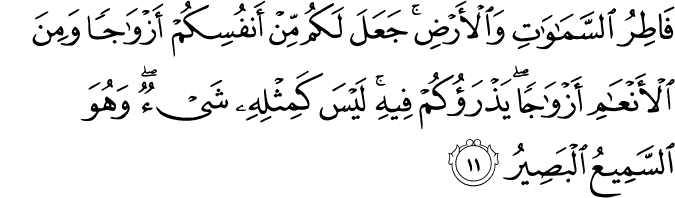 فَاطِرُ ٱلسَّمَٰوَٰتِ وَٱلْأَرْضِ ۚ جَعَلَ لَكُم مِّنْ أَنفُسِكُمْ أَزْوَٰجًا وَمِنَ
ٱلْأَنْعَٰمِ أَزْوَٰجًا ۖ يَذْرَؤُكُمْ فِيهِ ۚ لَيْسَ كَمِثْلِهِۦ شَىْءٌ ۖ وَهُوَ
ٱلسَّمِيعُ ٱلْبَصِيرُ ١١